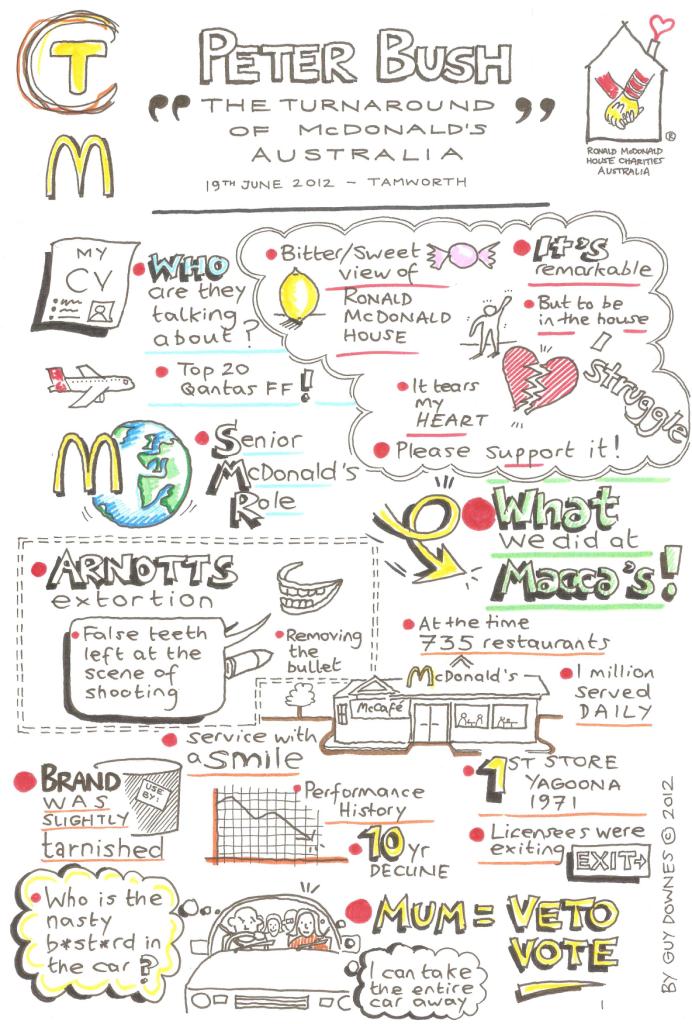 T
PETER BUSH
"THE TURNAROUND
OF McDONALD'S
AUSTRALIA"
19TH JUNE 2012 – TAMWORTH
M
RONALD McDONALD
HOUSE CHARITIES
AUSTRALIA
®
MY
CV
WHO
are they
talking
about?
Top 20
Qantas FF!
M
Senior
McDonald's
Role
Bitter/Sweet
view of
RONALD
McDONALD
HOUSE
It's
remarkable
But to be
in the house
I
struggle
It tears
my
HEART
Please support it!
ARNOTTS
extortion
False teeth
left at the
scene of
shooting
Removing
the
bullet
What
we did at
Macca's!
At the time
735 restaurants
McDonald's
McCafé
1 million
served
DAILY
service with
a smile
BRAND
WAS
SLIGHTLY
tarnished
USE
BY:
Performance
History
10 yr
DECLINE
1ST STORE
YAGOONA
1971
Licensees were
exiting
EXIT→
Who is the
nasty
b*st*rd in
the car?
MUM = VETO
VOTE
I can take
the entire
car away
1
BY GUY DOWNES © 2012